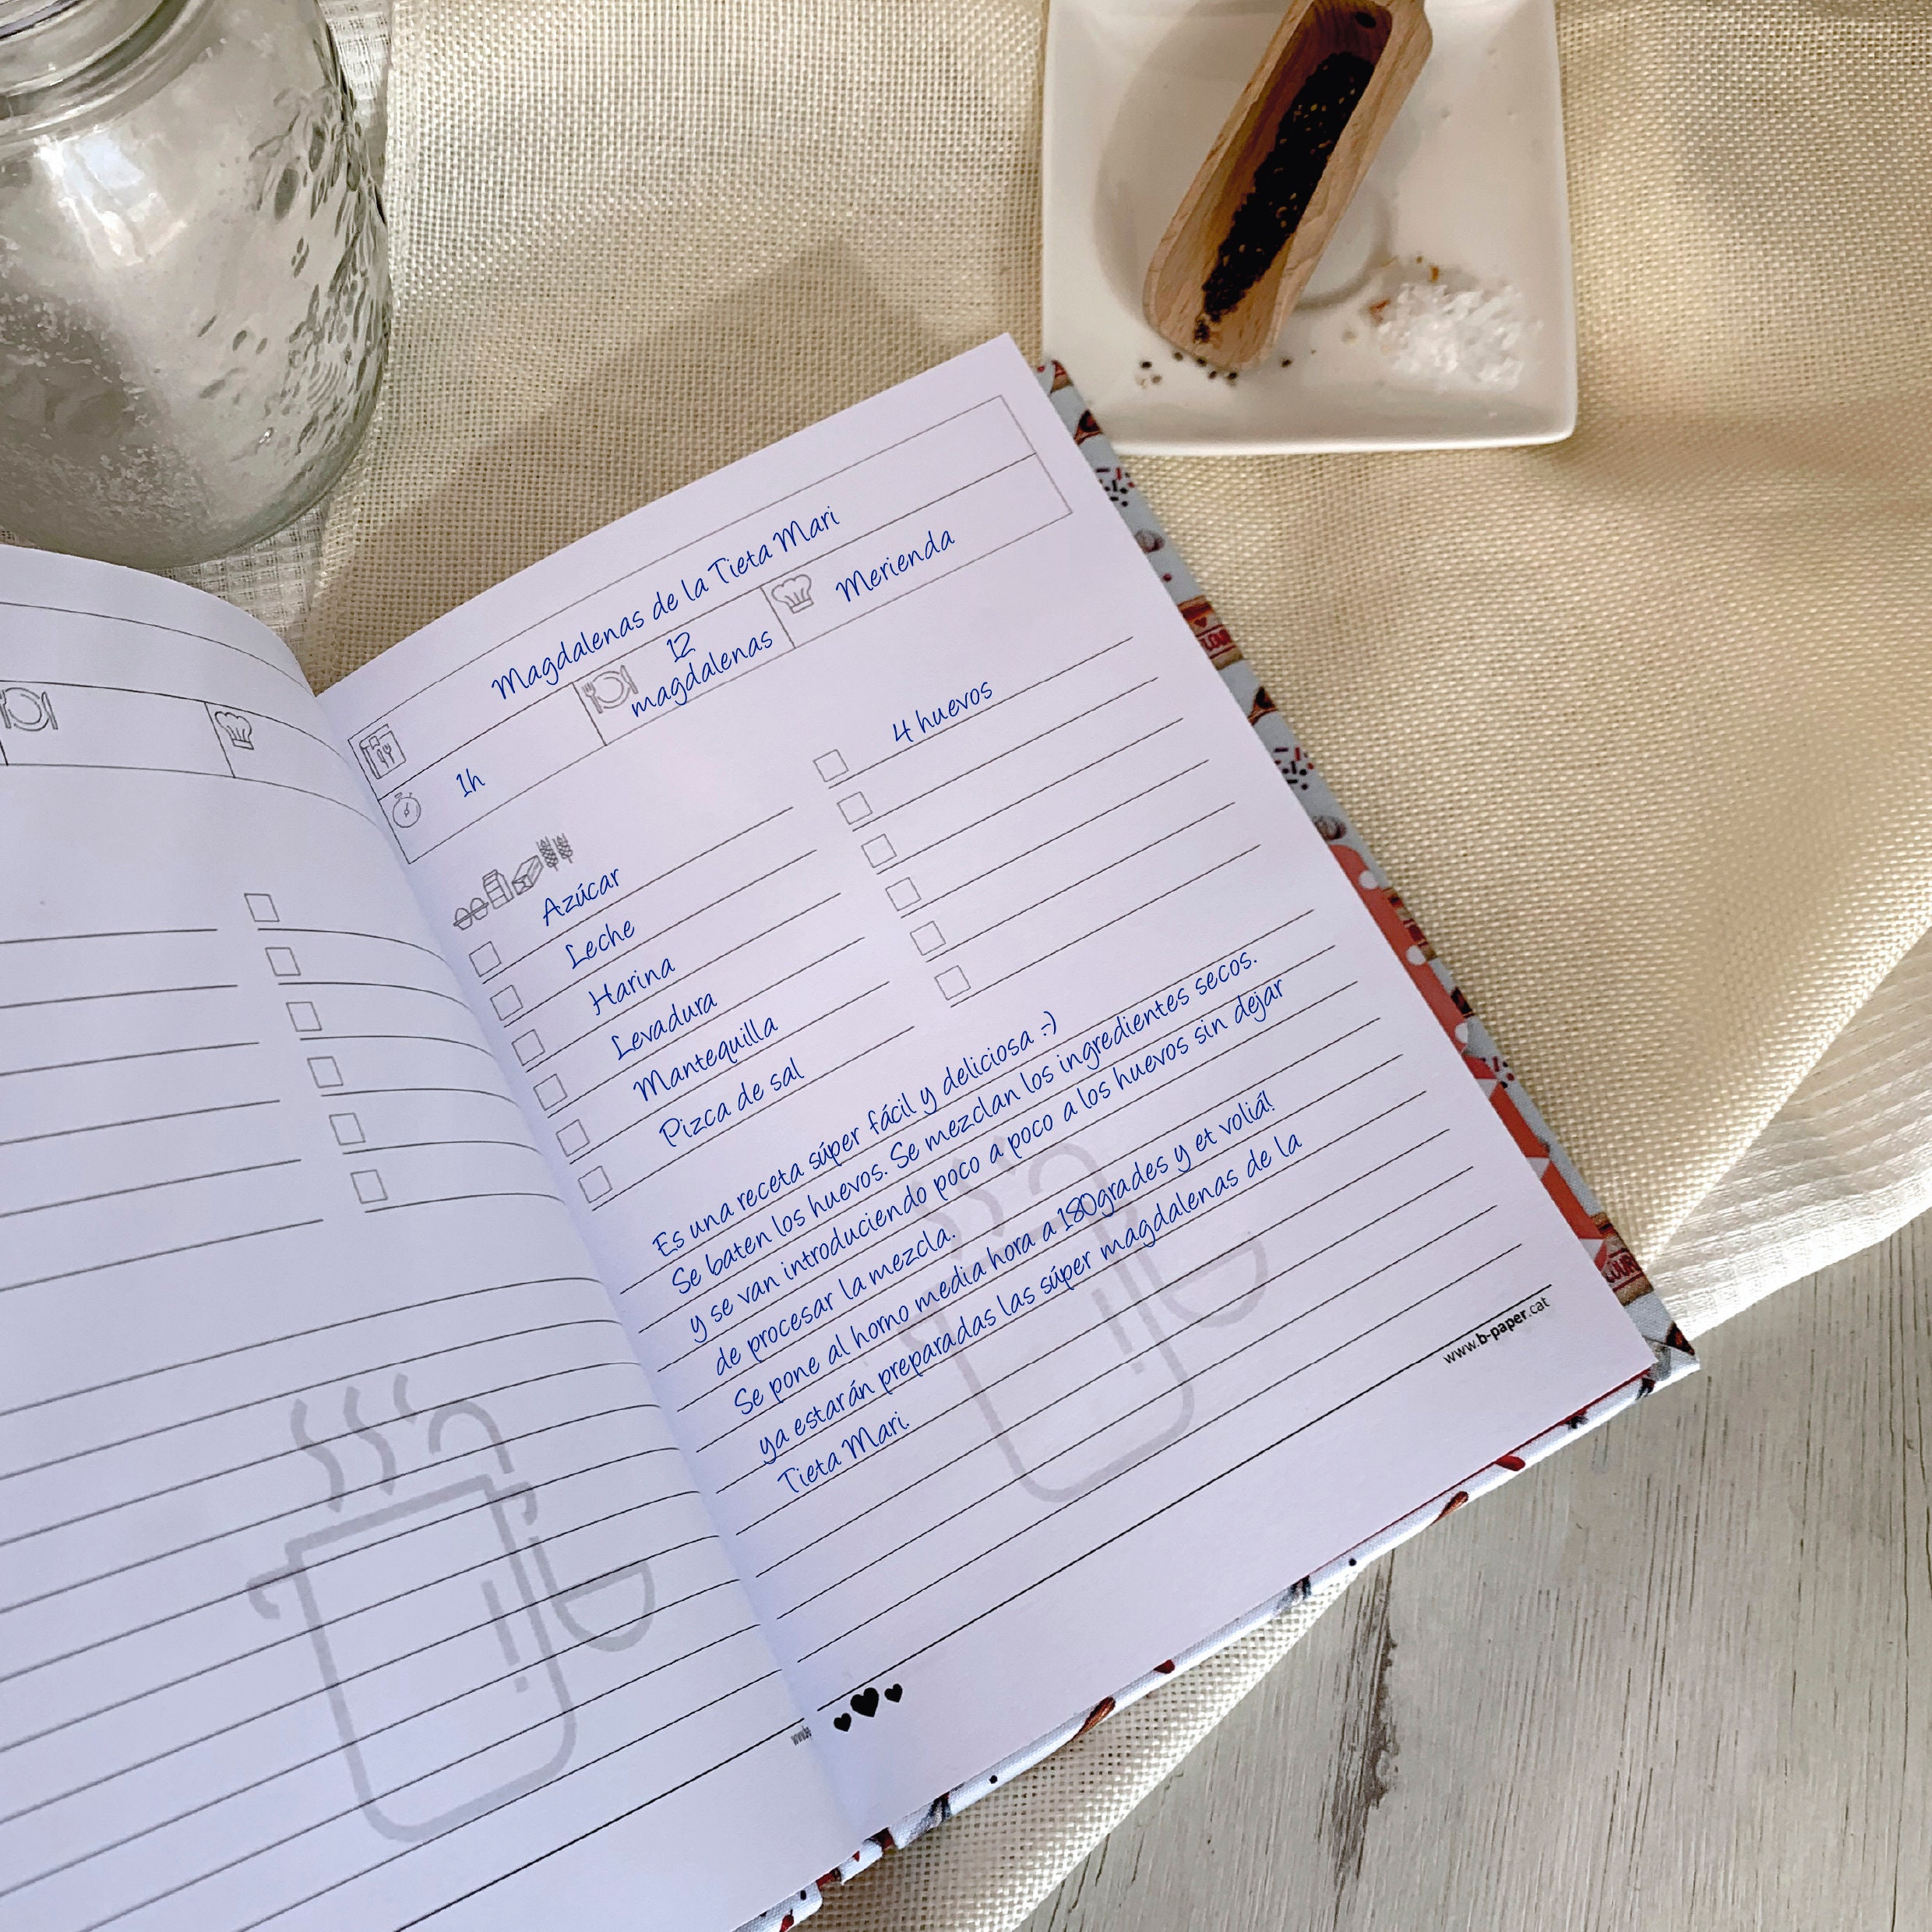 Magdalenas de la Tieta Mari
1h
12
magdalenas
Merienda
Azúcar
Leche
Harina
Levadura
Mantequilla
Pizca de sal
4 huevos
Es una receta súper fácil y deliciosa :-)
Se baten los huevos. Se mezclan los ingredientes secos.
y se van introduciendo poco a poco a los huevos sin dejar
de procesar la mezcla.
Se pone al horno media hora a 180grades y et voliá!
ya estarán preparadas las súper magdalenas de la
Tieta Mari.
www.b-paper.cat